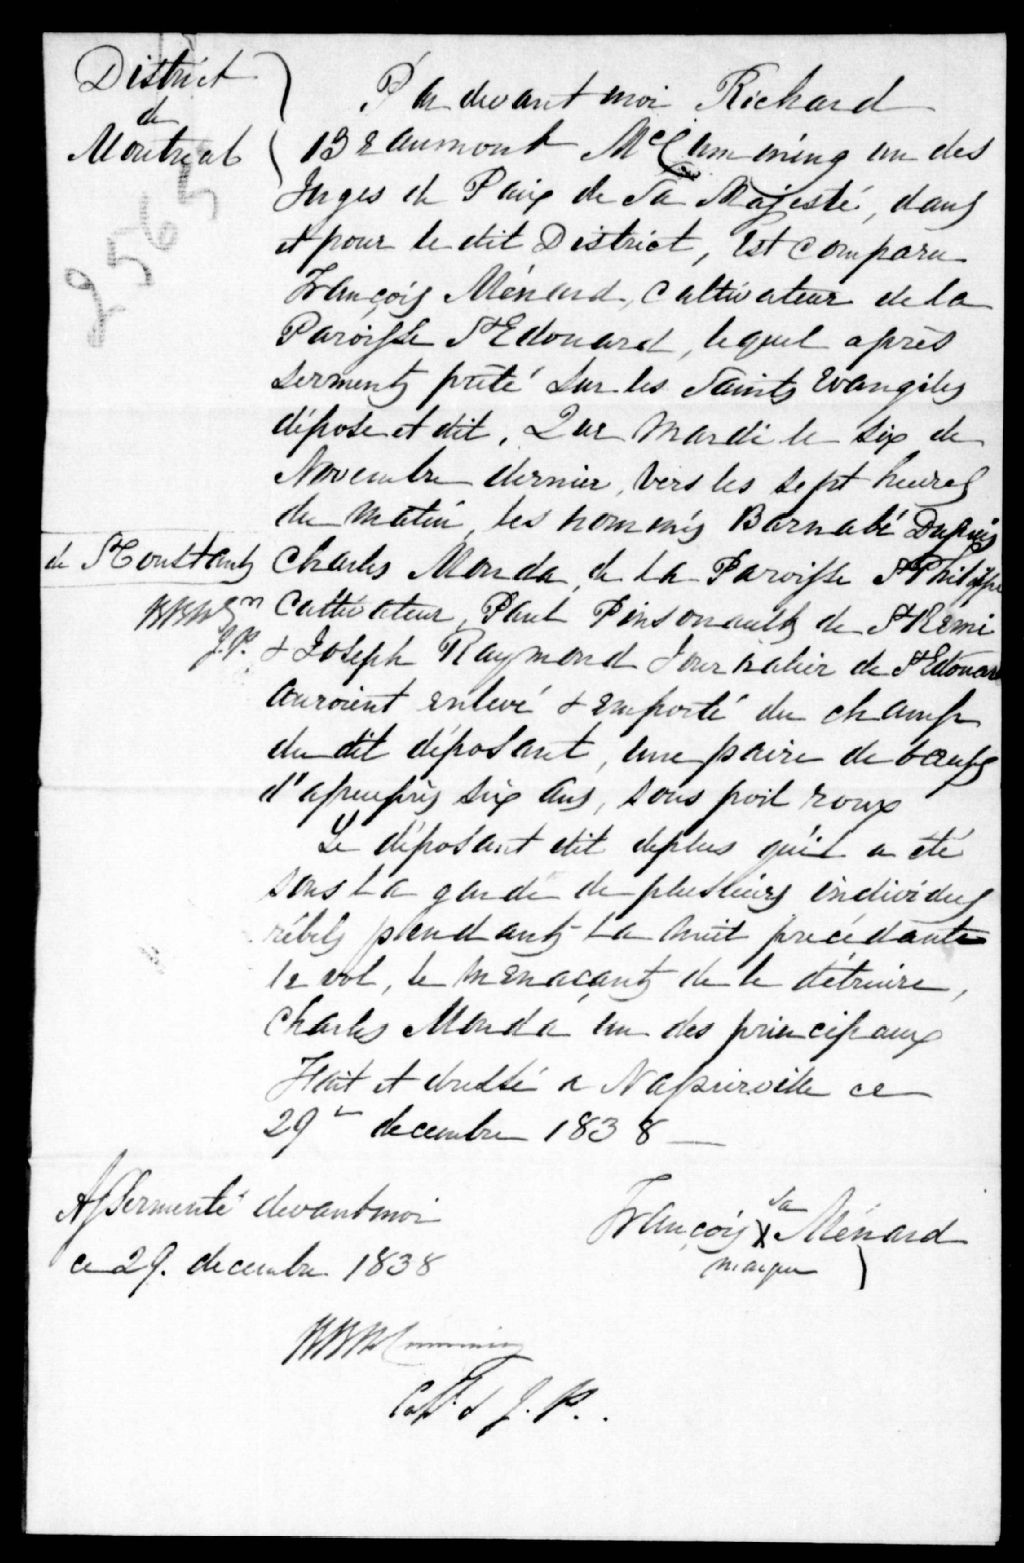 District
de
Montreal
2565
Par devant moi Richard
Beaumont McCumming un des
Juges de Paix de Sa Majesté, dans
et pour le dit District, Est comparu
François Ménard, Cultivateur de la
Paroisse St Edouard, lequel après
serments prêté sur les Saints Evangiles
dépose et dit, Que Mardi le six de
Novembre dernier, vers les sept heures
du matin, les nommés Barnabé Dupuis
de St Constant
Charles Monda, de la Paroisse St Philippe
Cultivateur, Paul Pinsonault de St Remi
J.P.
& Joseph Raymond Journalier de St Edouard
auroient enlevé & emporté du champ
du dit déposant, une paire de boeufs
d'apeuprès six ans, sous poil roux
Le déposant dit deplus qu'il a été
sous la garde de plusieurs individus
rébels pendant la nuit précédante
le vol, le menaçant de le détruire,
Charles Monda un des principaux
Fait et dressé a Napierville ce
29 decembre 1838
Assermenté devant moi
ce 29. decembre 1838
François sa X Ménard
marque
RBMcCumming
Capt & J.P.